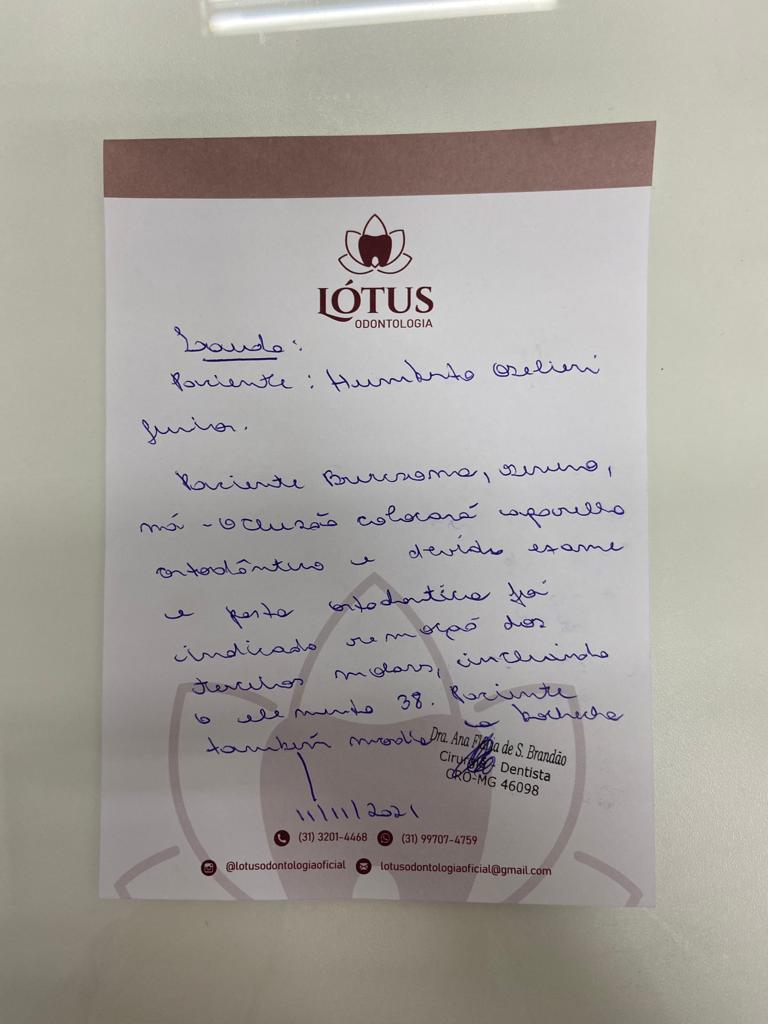 LÓTUS
ODONTOLOGIA
Laudo:
Paciente: Humberto
Junior.
Paciente Bruxsomo,
má-oclusão colocará aparelho
ortodôntico e devido exame
e pasta ortodontica foi
indicado remoção dos
terceiros molars, incluindo
o elemento 38. Paciente
a bochecha
também
Dra. Ana Flávia de S. Brandão
Cirurgiã - Dentista
CRO-MG 46098
11/11/2021
(31) 3201-4468 (31) 99707-4759
@lotusodontologiaoficial lotusodontologiaoficial@gmail.com